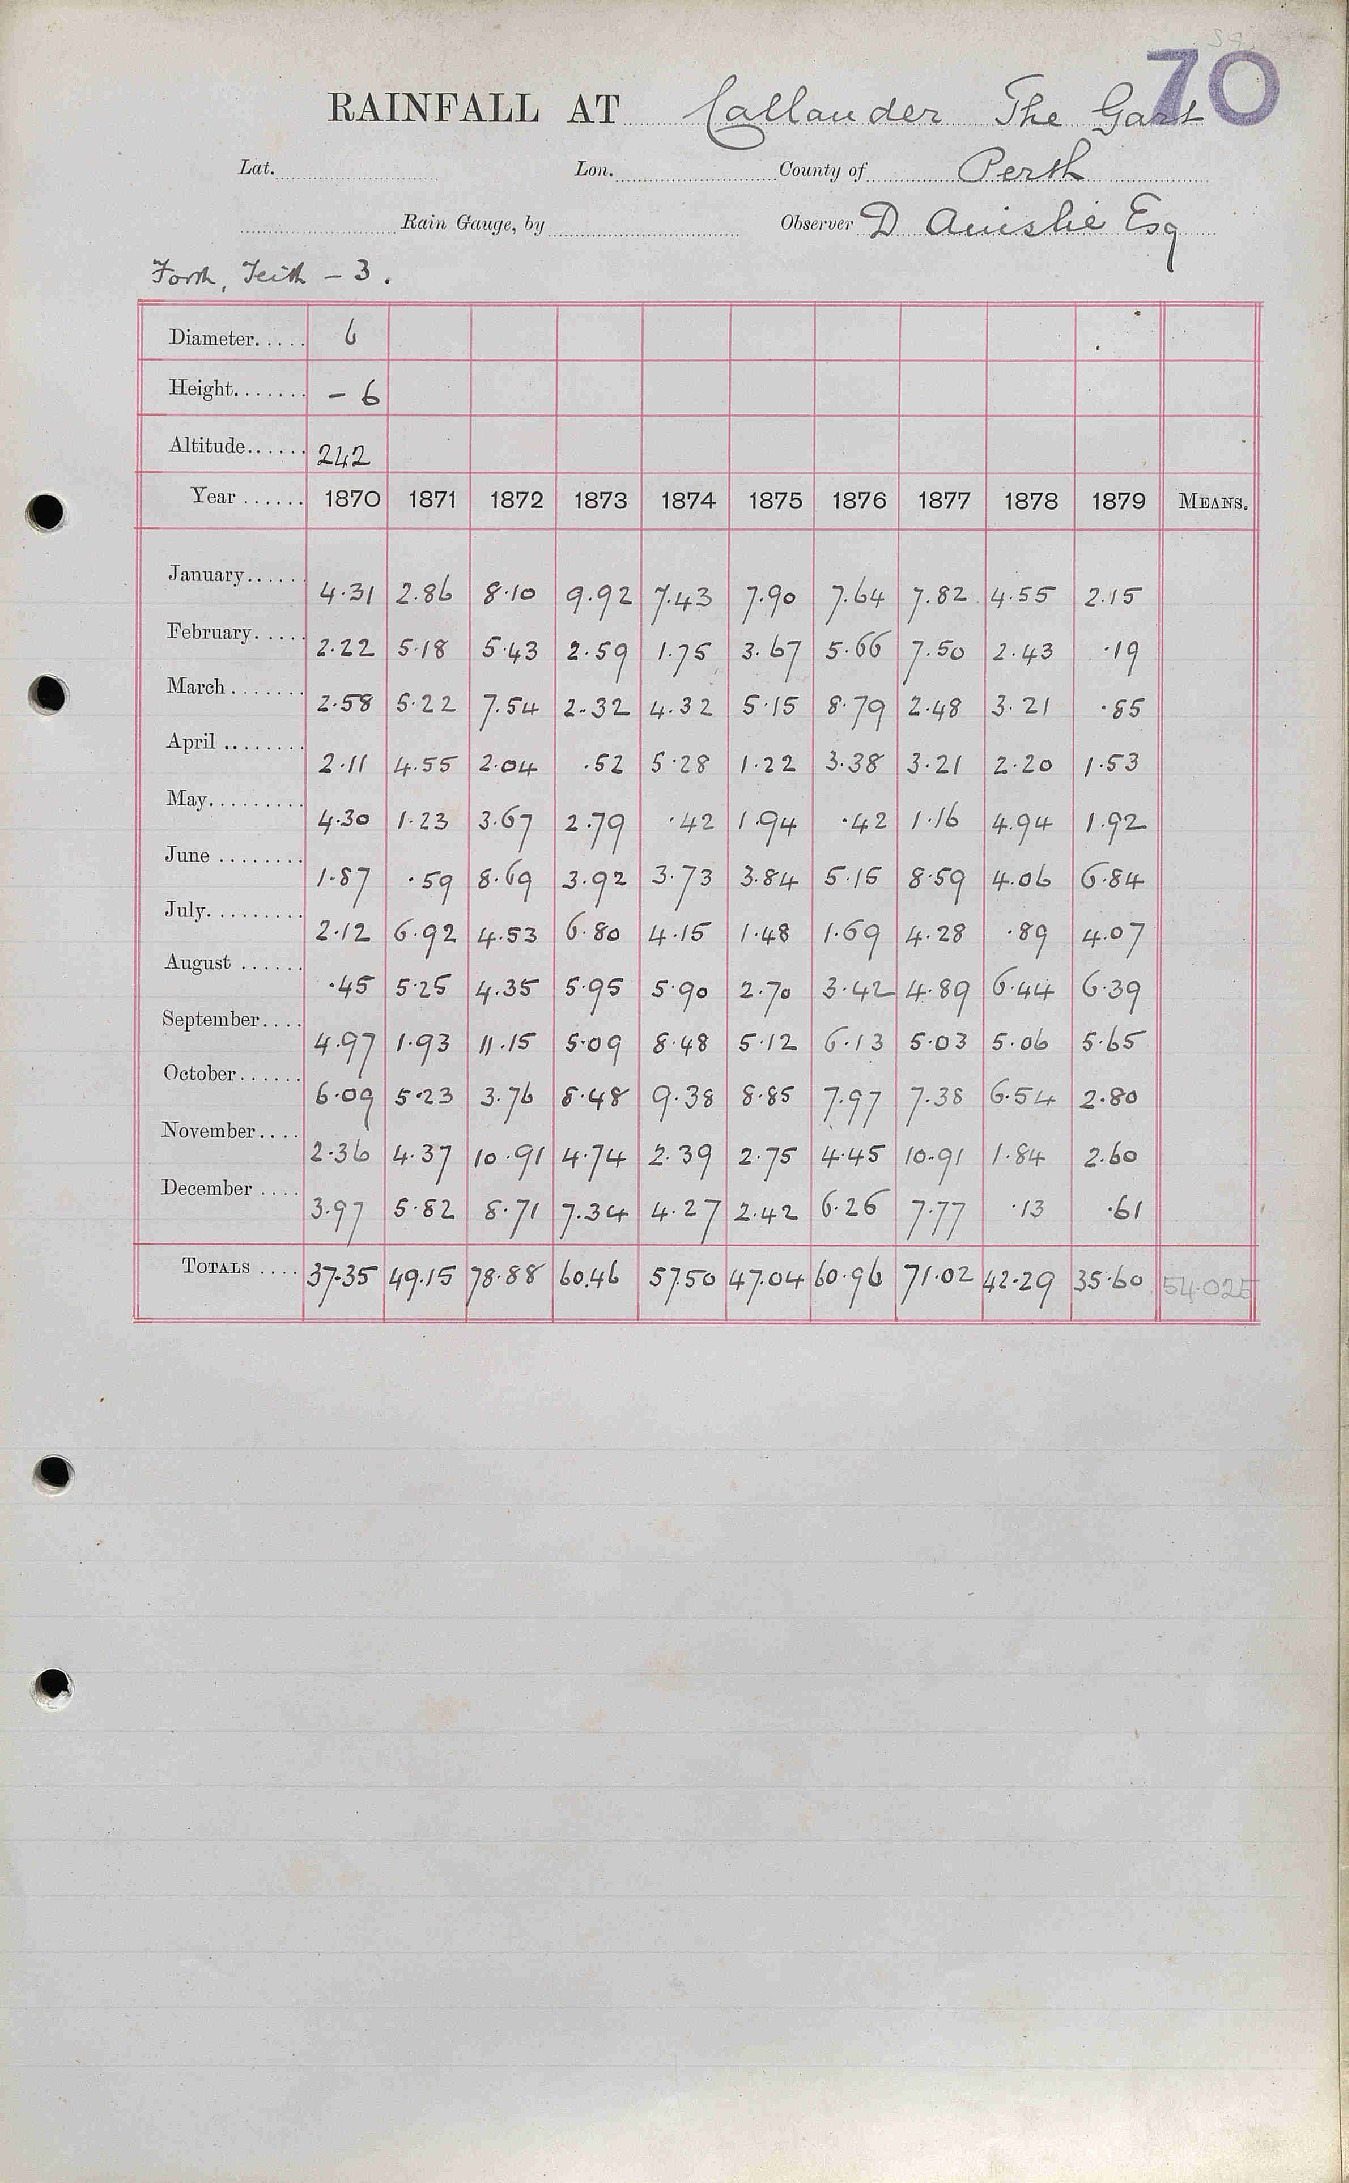 70
RAINFALL AT Callander The Gart
Lat. Lon. County of Perth
Rain Gauge, by Observer D Ainslie Esq
Forth, Teith - 3.
Diameter..... 6
Height....... - 6
Altitude...... 242
Year ...... 1870 1871 1872 1873 1874 1875 1876 1877 1878 1879 MEANS.
January...... 4.31 2.86 8.10 9.92 7.43 7.90 7.64 7.82 4.55 2.15
February..... 2.22 5.18 5.43 2.59 1.75 3.67 5.66 7.50 2.43 .19
March ....... 2.58 5.22 7.54 2.32 4.32 5.15 8.79 2.48 3.21 .85
April ........ 2.11 4.55 2.04 .52 5.28 1.22 3.38 3.21 2.20 1.53
May......... 4.30 1.23 3.67 2.79 .42 1.94 .42 1.16 4.94 1.92
June ........ 1.87 .59 8.69 3.92 3.73 3.84 5.15 8.59 4.06 6.84
July......... 2.12 6.92 4.53 6.80 4.15 1.48 1.69 4.28 .89 4.07
August ...... .45 5.25 4.35 5.95 5.90 2.70 3.42 4.89 6.44 6.39
September.... 4.97 1.93 11.15 5.09 8.48 5.12 6.13 5.03 5.06 5.65
October...... 6.09 5.23 3.76 8.48 9.38 8.85 7.97 7.38 6.54 2.80
November.... 2.36 4.37 10.91 4.74 2.39 2.75 4.45 10.91 1.84 2.60
December .... 3.97 5.82 8.71 7.34 4.27 2.42 6.26 7.77 .13 .61
TOTALS .... 37.35 49.15 78.88 60.46 57.50 47.04 60.96 71.02 42.29 35.60 54.025